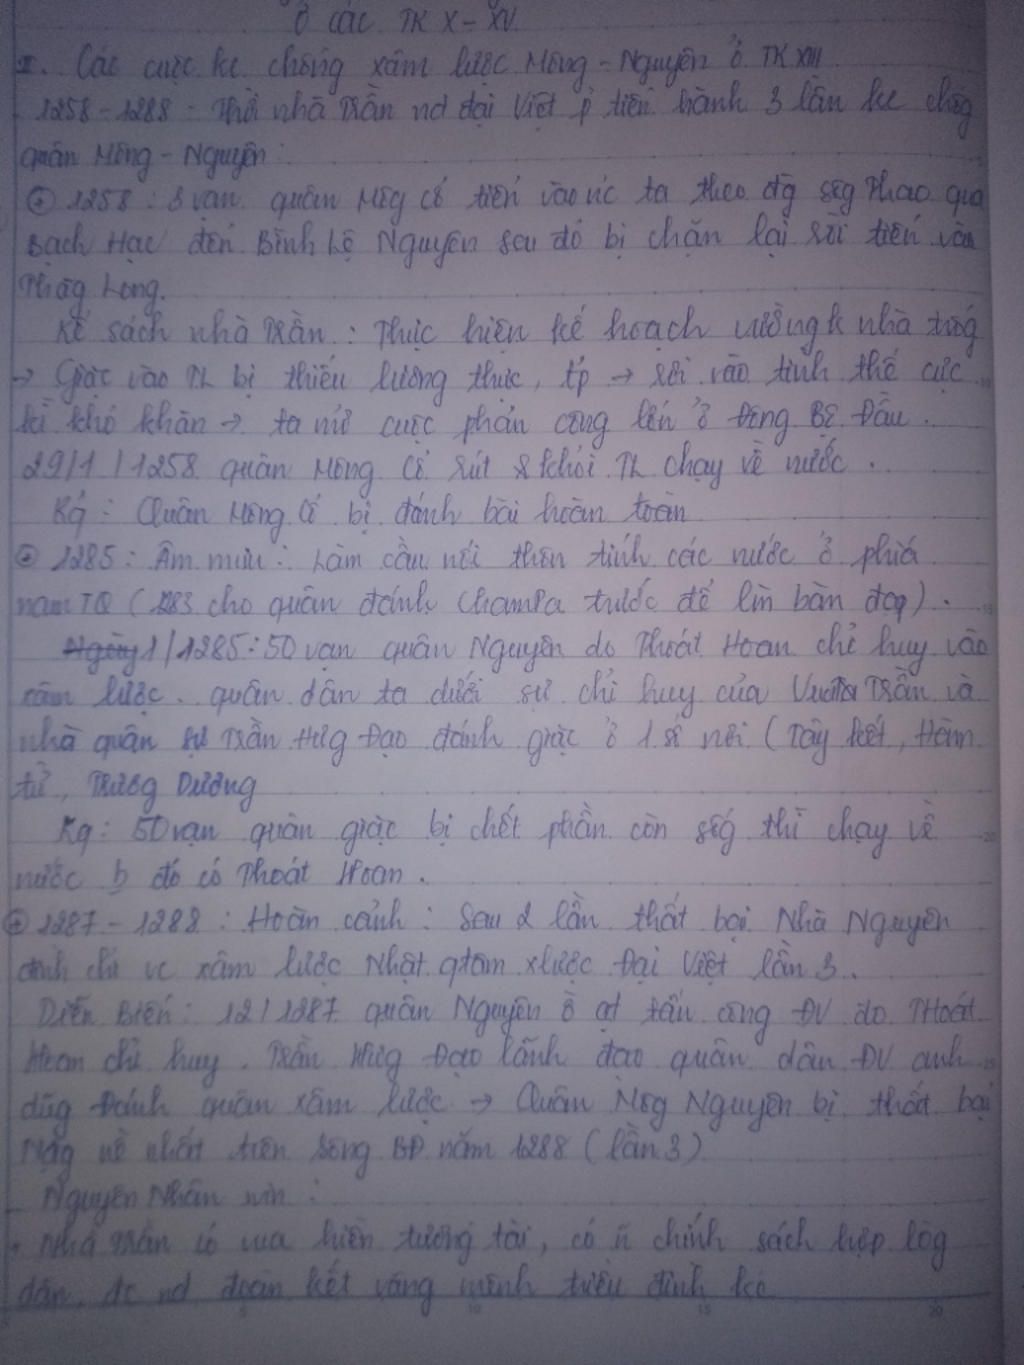 ở các TK X - XV
I. Các cuộc kc chống xâm lược Mông - Nguyên ở TK XIII
1258 - 1288 : Thời nhà Trần nd đại Việt p tiến hành 3 lần kc chốg
quân Mông - Nguyên :
1258 : 3 vạn quân Môg Cổ tiến vào nc ta theo đg sôg Thao qua
Bạch Hạc đến Bình Lệ Nguyên sau đó bị chặn lại rồi tiến vào
Thăg Long.
Kế sách nhà Trần : Thực hiện kế hoạch vườn k nhà trốg
→ Giặc vào TL bị thiếu lương thực, tp → rơi vào tình thế cực
kì khó khăn → ta mở cuộc phản công lớn ở Đông Bộ Đầu .
29/1/1258 quân Mông Cổ rút khỏi TL chạy về nước .
Kq : Quân Mông Cổ bị đánh bại hoàn toàn
1285 : Âm mưu : Làm cầu nối thôn tính các nước ở phía
nam TQ ( 1283 cho quân đánh ChamPa trước để làm bàn đạp ) .
1/1285 : 50 vạn quân Nguyên do Thoát Hoan chỉ huy vào
xâm lược . quân dân ta dưới sự chỉ huy của Vua Trần và
nhà quân sự Trần Hưg Đạo đánh giặc ở 1 số nơi ( Tây Kết , Hàm
tử , Chươg Dương
Kq : 50 vạn quân giặc bị chết phần còn sốg thì chạy về
nước đó có Thoát Hoan .
1287 - 1288 : Hoàn cảnh : Sau 2 lần thất bại Nhà Nguyên
đình chỉ vc xâm lược Nhật qtâm xlược Đại Việt lần 3 .
Diễn Biến : 12/1287 quân Nguyên ồ ạt tấn công ĐV do Thoát
Hoan chỉ huy . Trần Hưg Đạo lãnh đạo quân dân ĐV anh
dũg Đánh quân xâm lược → Quân Môg Nguyên bị thất bại
Nặg nề nhất trên Sông BĐ năm 1288 ( lần 3 )
Nguyên Nhân :
+ Nhà Trần có vua hiền tướng tài , có n chính sách hợp lòg
dân , đc nd đoàn kết vâng mệnh triều đình kc